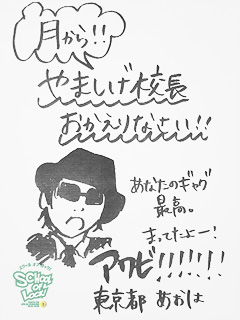 月から!!
やましげ校長
おかえりなさい!!
あなたのギャグ
最高。
まってたよー!
アワビ!!!!!!
東京都 あかは
SCHOOL
OF
LOCK!